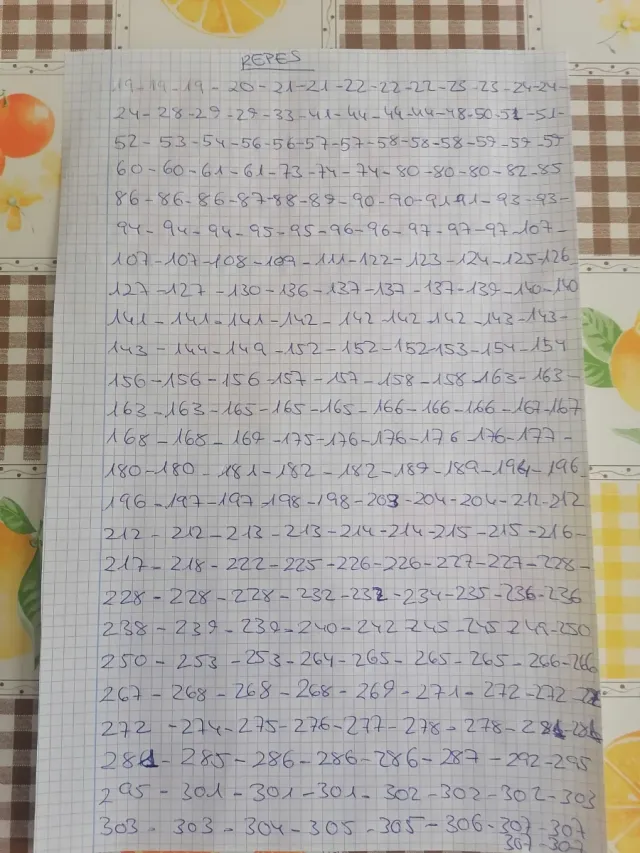 REPES
19-19-19-20-21-21-22-22-22-23-23-24-24-
24-28-29-29-33-41-44-44-44-48-50-51-51-
52-53-54-56-56-57-57-58-58-58-59-59-59
60-60-61-61-73-74-74-80-80-80-82-85
86-86-86-87-88-89-90-90-91-91-93-93-
94-94-94-95-95-96-96-97-97-97-107-
107-107-108-109-111-122-123-124-125-126
127-127-130-136-137-137-137-139-140-140
141-141-141-142-142-142-142-143-143-
143-144-149-152-152-152-153-154-154
156-156-156-157-157-158-158-163-163-
163-163-165-165-165-166-166-166-167-167
168-168-169-175-176-176-176-176-177-
180-180-181-182-182-189-189-196-196
196-197-197-198-198-203-204-204-212-212
212-212-213-213-214-214-215-215-216-
217-218-222-225-226-226-227-227-228-
228-228-228-232-232-234-235-236-236
238-239-239-240-242-245-245-249-250
250-253-253-264-265-265-265-266-266
267-268-268-268-269-271-272-272-
272-274-275-276-277-278-278-
285-286-286-286-287-292-295
295-301-301-301-302-302-302-303
303-303-304-305-305-306-307-307
307-307